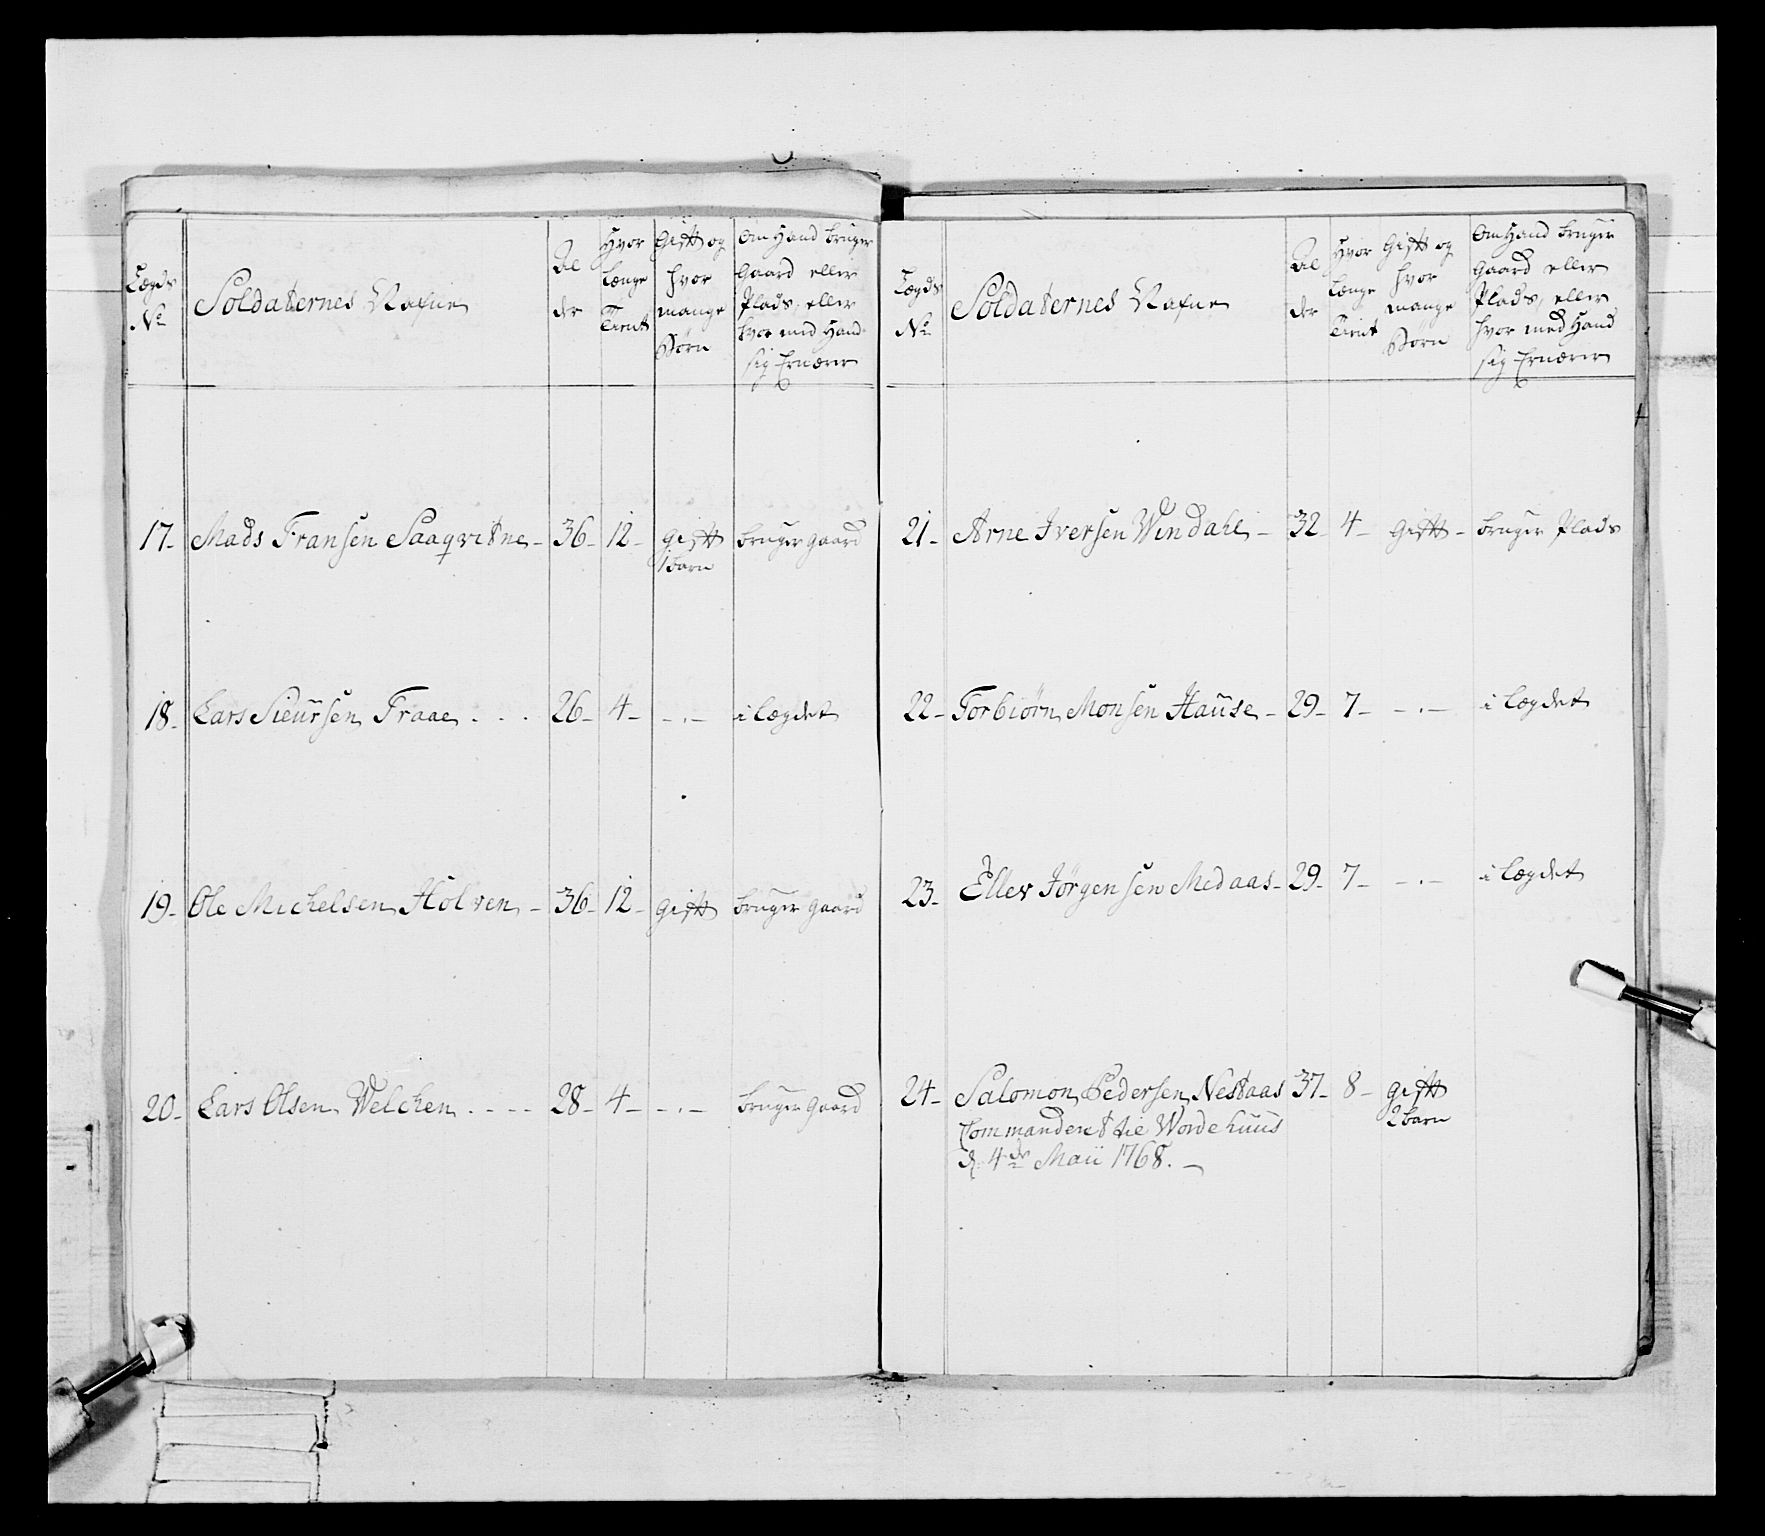 Lægds No
Soldaternes Nafne
Alder
Hvor Længe Tient
Gift og hvor mange Børn
Om Hand bruger Gaard eller Plads, eller hvor med Hand sig Ernærer
17- Mads Fransen Saaqvitne- 36- 12- gift 1 barn bruger gaard
18- Lars Sieursen Traae. . . 26- 4- -.- i Lægdet
19- Ole Michelsen Holven- 36- 12- gift bruger gaard
20- Lars Olsen Welchen. . . . 28- 4- -.- bruger gaard
Lægds No
Soldaternes Nafne
Alder
Hvor Længe Tient
Gift og hvor mange Børn
Om Hand bruger Gaard eller Plads, eller hvor med Hand sig Ernærer
21- Arne Iversen Windahl- 32- 4- gift- bruger Plads
22- Torbiørn Monsen Hause- 29- 7- -.- i Lægdet
23- Ellev Jørgensen Medaas- 29- 7- -.- i Lægdet
24- Salomon Pedersen Nestaas 37- 8- gift 2 barn
Commanderet til Wordehuus
d. 4de Maii 1768.